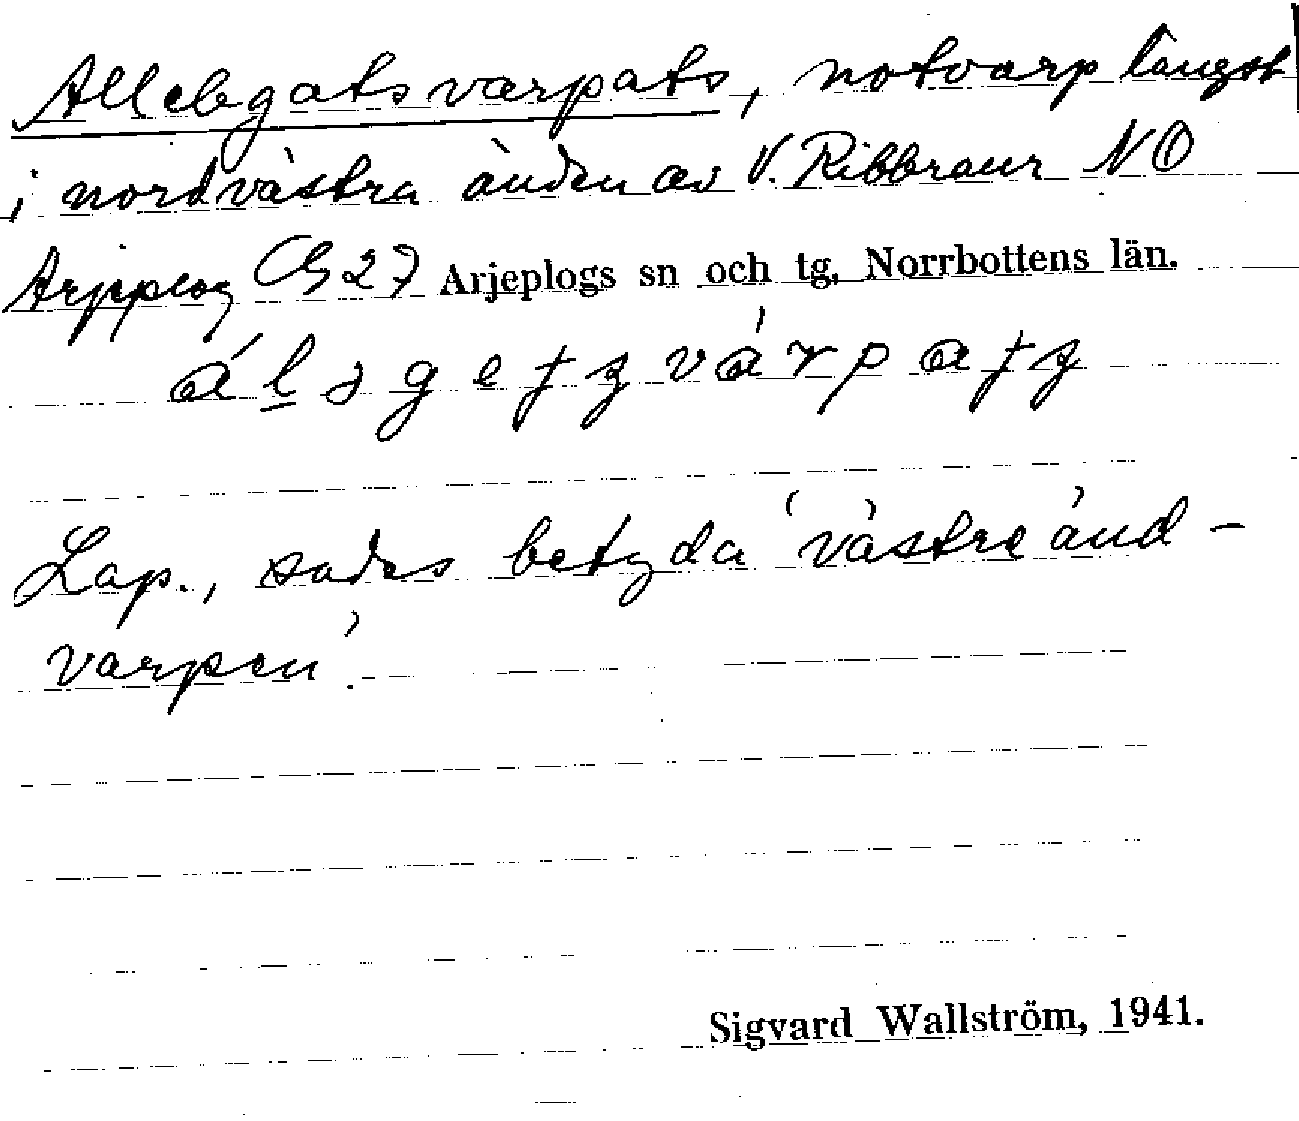 Allebgatsvarpats, notvarp längst
i nordvästra änden av V. Ribbraur NO
Arjeplog Cb 27 Arjeplogs sn och tg, Norrbottens län.
Lap., sades betyda 'västre änd-
varpen'.
Sigvard Wallström, 1941.